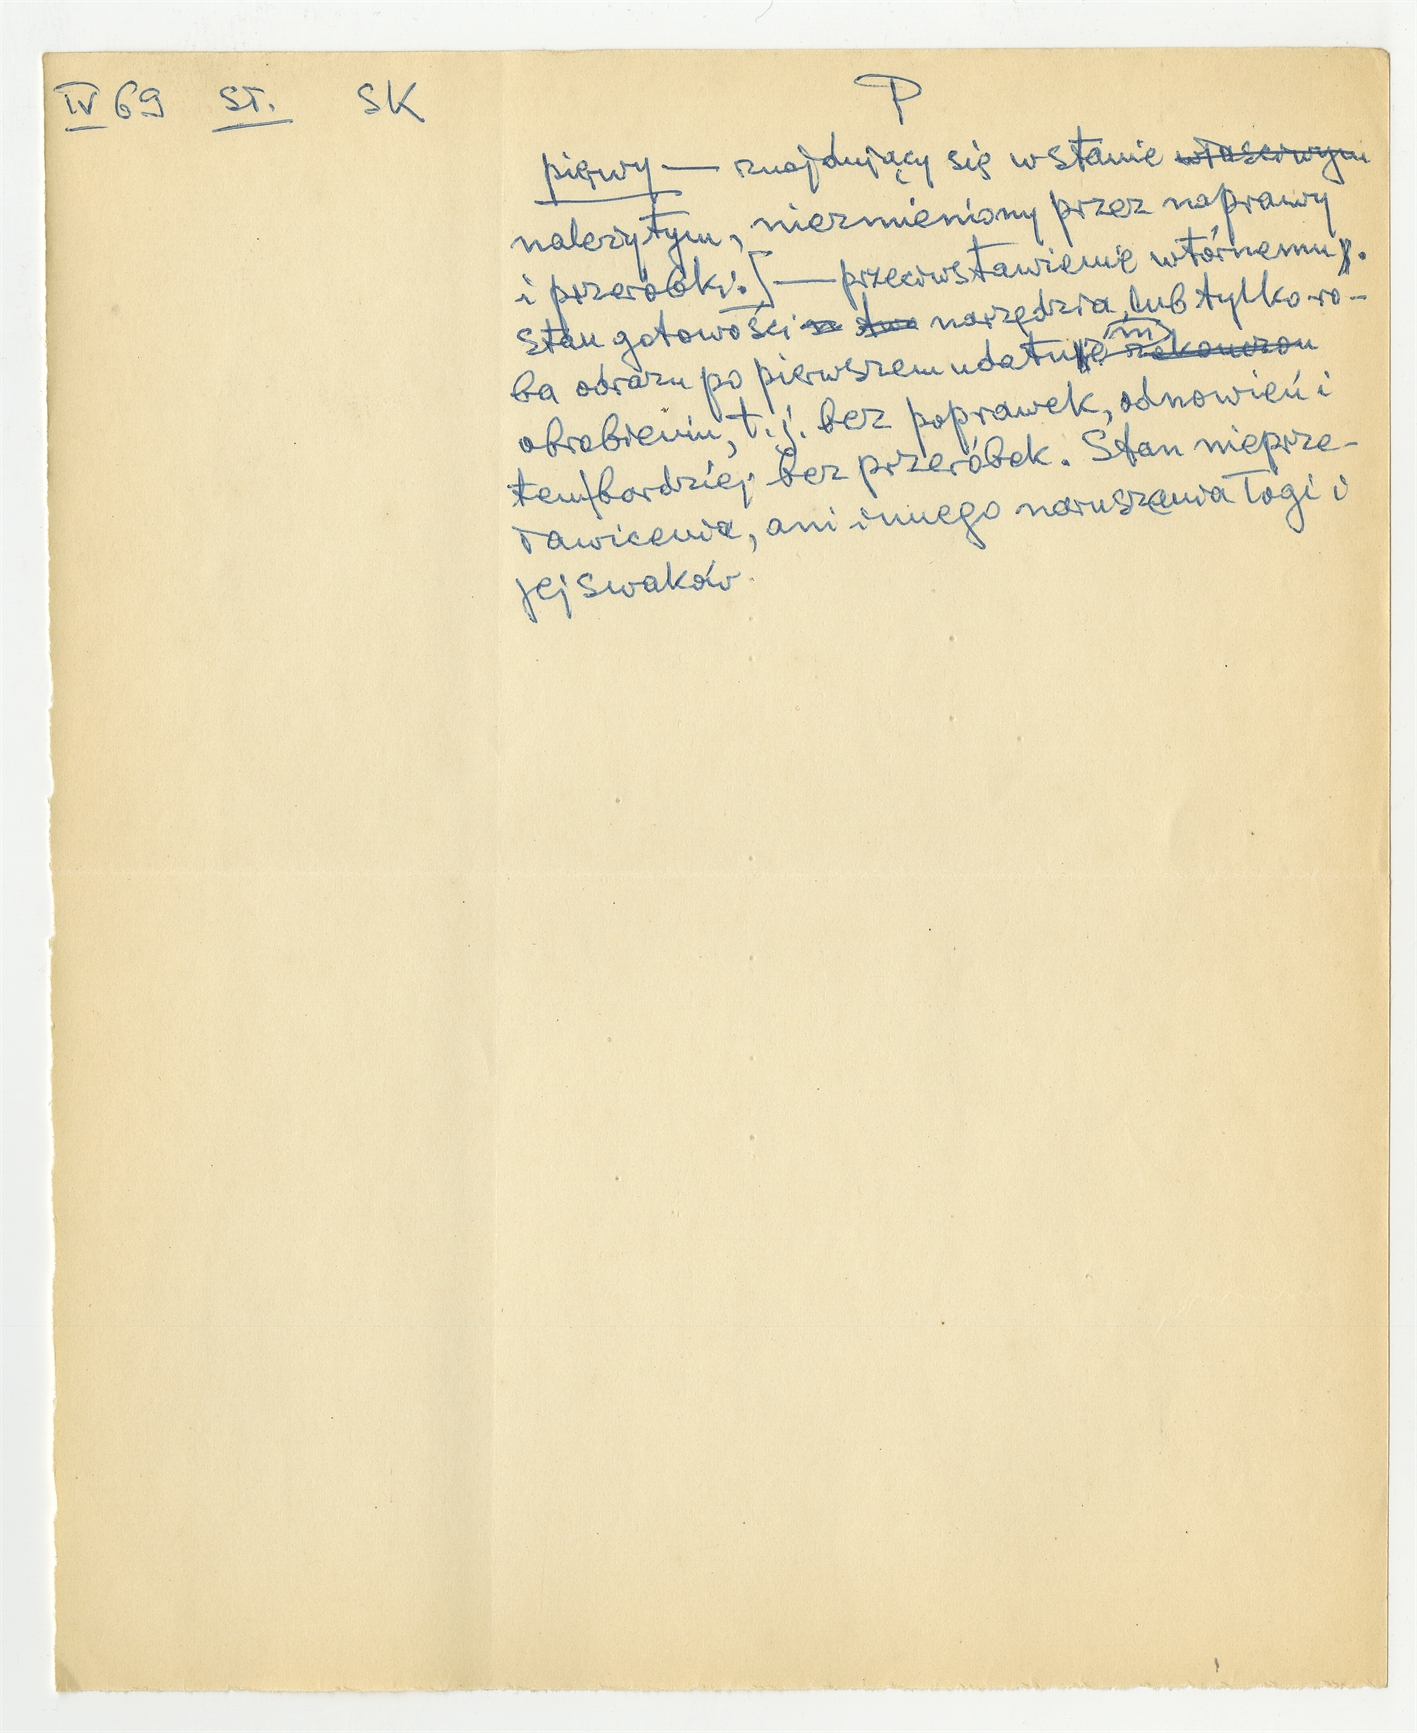 IV 69 ST. SK
P
pierwy — znajdujący się w stanie właściwym
należytym, niezmieniony przez naprawy
i przeróbki. [— przeciwstawienie wtórnemu].
Stan gotowości narzędzia, lub tylko ro-
ba obrazu po pierwszem udatnem
obrobieniu, t.j. bez poprawek, odnowień i
tem bardziej bez przeróbek. Stan nieprze-
ławicenia, ani innego naruszenia łogi i
jej swaków.